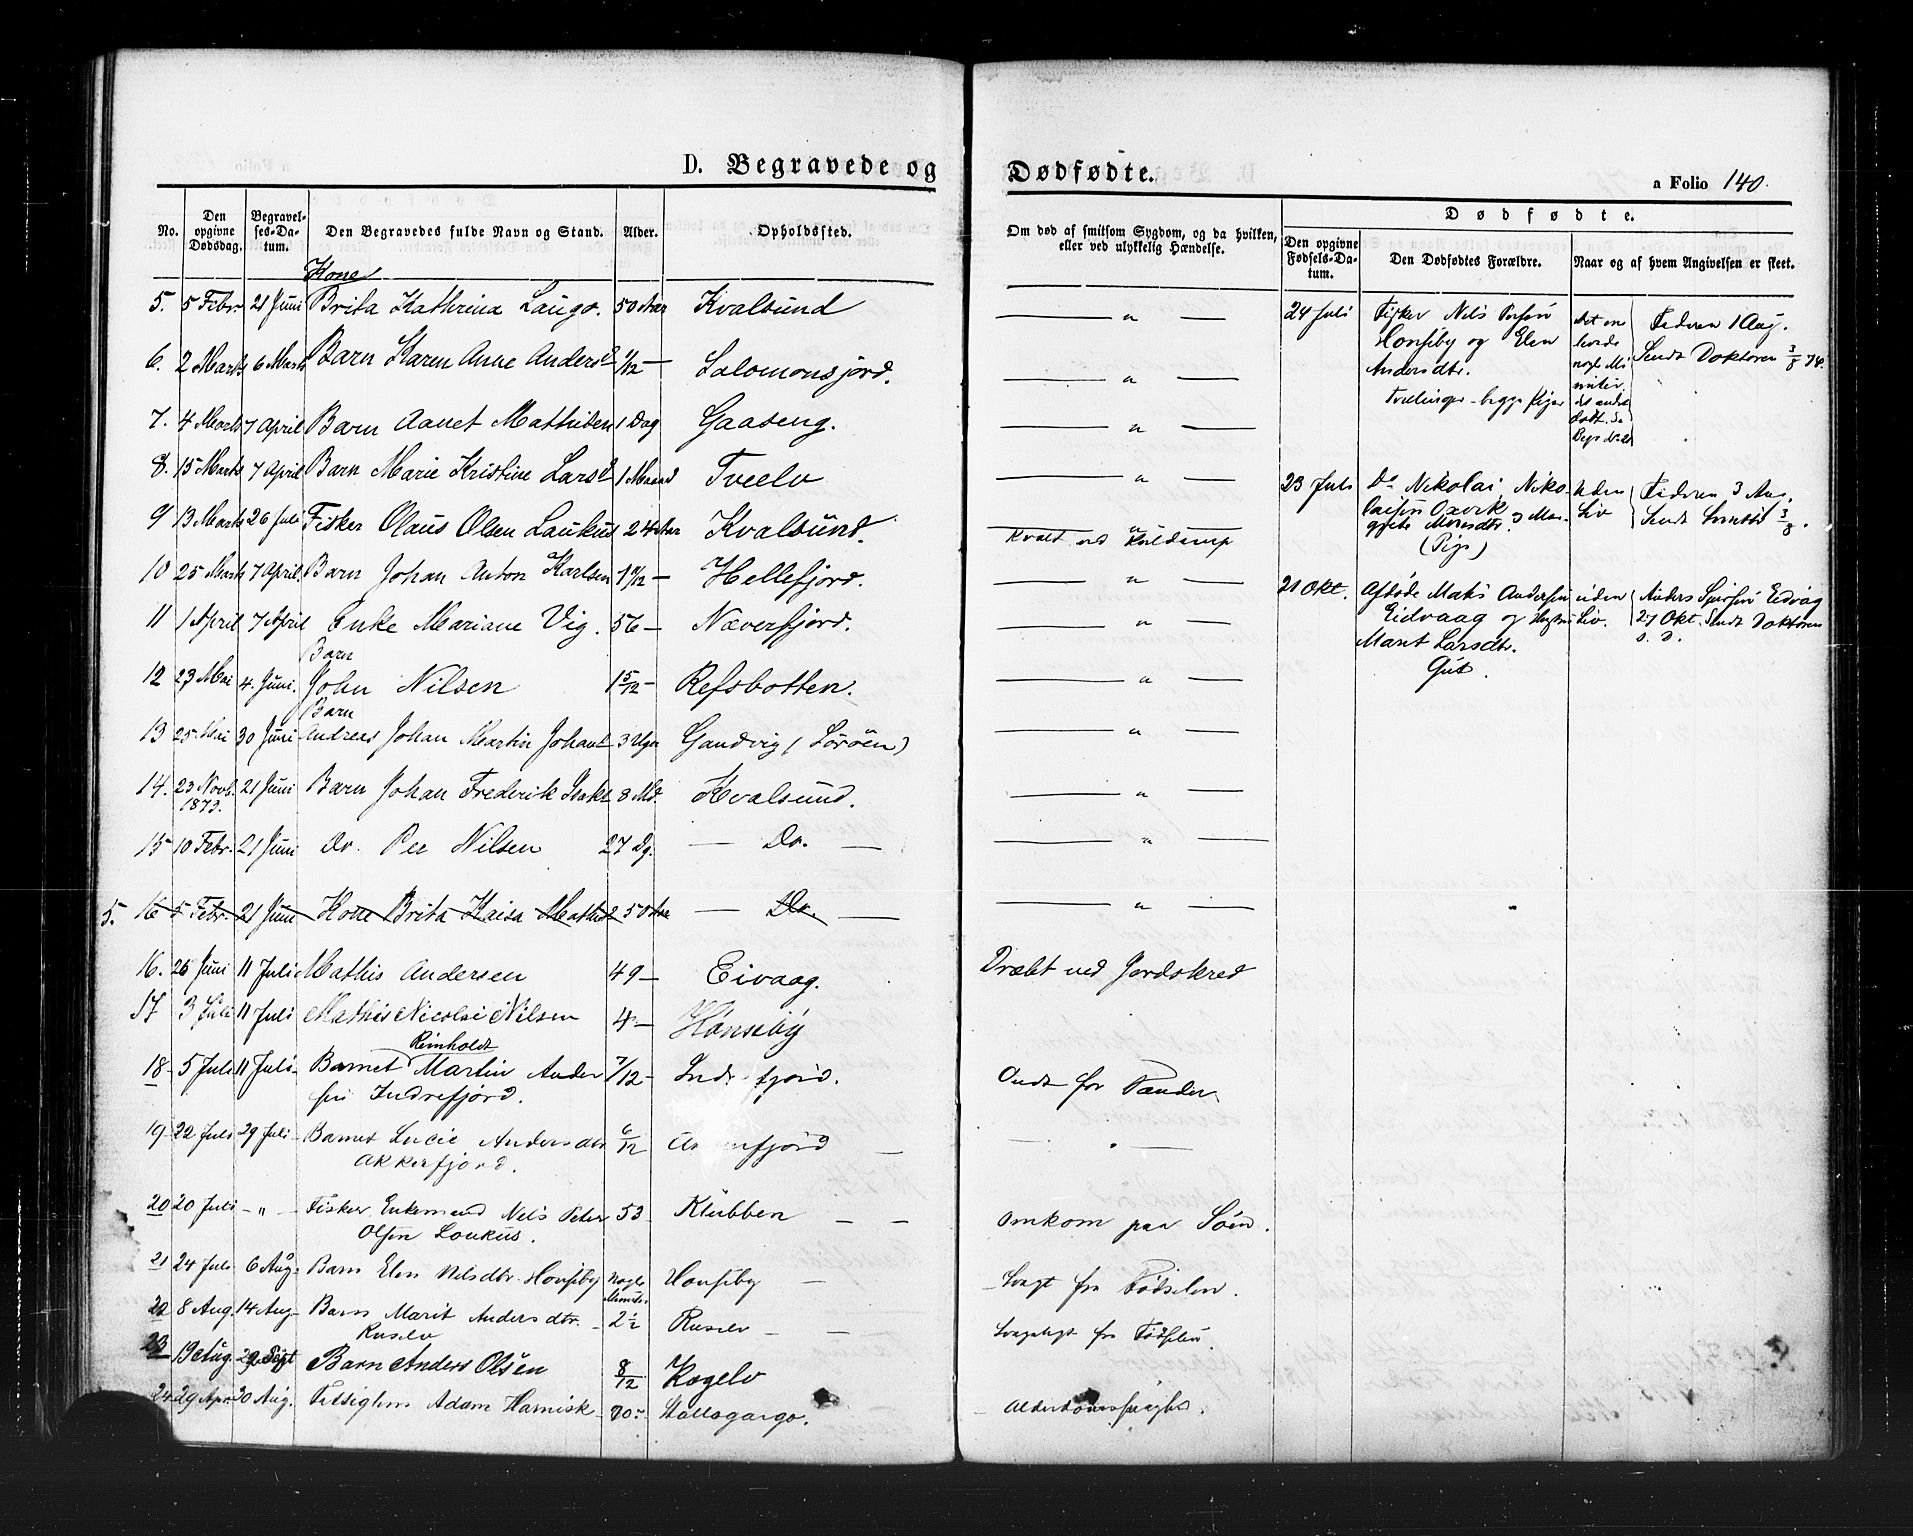 D. Begravede og
Dødfødte.
a Folio 140.
No.
Den opgivne Dødsdag.
Begravel-ses-Da-tum.
Den Begravedes fulde Navn og Stand.
Alder.
Opholdssted.
Om død af smitsom Sygdom, og da hvilken, eller ved ulykkelig Hændelse.
Dødfødte.
Den opgivne Fødsels-Da-tum.
Den Dødfødtes Forældre.
Naar og af hvem Angivelsen er skeet.
Kone
5. 5 Febr. 21 Juni Brita Kathrina Laugo. 50 Aar Kvalsund — " —
6. 2 Marts 6 Marts Barn Karen Anne Andersd 1/12 — Salomonsjord. — " —
7. 4 Marts 7 April Barn Aanet Mathisen 1 Dag Gaaseng. — " —
8. 15 Marts 7 April Barn Marie Kristine Larsd 1 Maaned Tveelv — " —
9 13 Marts 26 Juli Fisker Olaus Olsen Laukus 24 Aar Kvalsund. — " —
Kvalt ved Kuldamp
10 25 Marts 7 April Barn Johan Anton Karlsen 1 9/12 — Hellefjord. — " —
11 1 April 7 April Enke Mariane Vig. 56 — Næverfjord. — " —
Barn
12 23 Mai 4. Juni. John Nilsen 1 5/12 — Refsbotten. — " —
Barn
13 25 Mai 30 Juni Andreas Johan Martin Johans 3 Uger Gandvig (Sørøen) — " —
14. 23 Novb. 21 Juni Barn Johan Frederik Isaks 8 Md. Kvalsund. — " —
1873.
15 10 Febr. 21 Juni Do. Per Nilsen 27 Dg. — Do. — — " —
5. 16 5 Febr. 21 Juni Kone Brita Kaisa Mathisd 50 Aar — Do. — — " —
16. 26 Juni 11 Juli Mathis Andersen 49 — Eivaag. Dræbt ved Jordskred
17 3 Juli 11 Juli Mathis Nicolai Nilsen 4 — Hønseby
Reinholdt
18 5 Juli 11 Juli Barnet Martin Ander 7/12 — Ind fjord. Ondt for Tænder
sen Indrefjord.
19 22 Juli 29 Juli Barnet Lucie Andersdtr 6/12 fjord — " —
Akkerfjord.
20 20 Juli — " — Fisker, Enkemand Nels Peter 53 Klubben — — Omkom paa Søen.
Olsen Loukus.
21 24 Juli 6 Aug. Barn Elen Nilsdtr. Honseby Nogle Minuter Honseby — Svagt fra Fødselen.
22 8 Aug. 14 Aug. Barn Marit Andersdtr. 2 1/2 Ruselv — — Svageligt fra Fødselen
Ruselv
23 19 Aug. 29 Sept Barn Anders Olsen 8/12 Kogelv
24 29 Apr. 30 Aug. Adam Harnisk 70 Alderdomssvaghed.
24 Juli
Fisker Nils
Honseby og Elen
Andersdtr.
Tvillinger - begge Piger
Det ene
levede
nogle Mi
nuter,
det andre
Faderen 1 Aug.
Sendt Doktoren 3/8 74.
23 Juli
Do Nikolai Niko
laisen Oxvik
(Pige)
Uden
Liv
Faderen 3 Aug.
Sendt 3/8.
21 Okt.
Afdøde Mats Andersen
Eidvaag og Hustru
Marit Larsdtr.
Gut.
uden
Liv.
Anders Eidvaag
27 Okt. Sendt Doktoren
s. D.